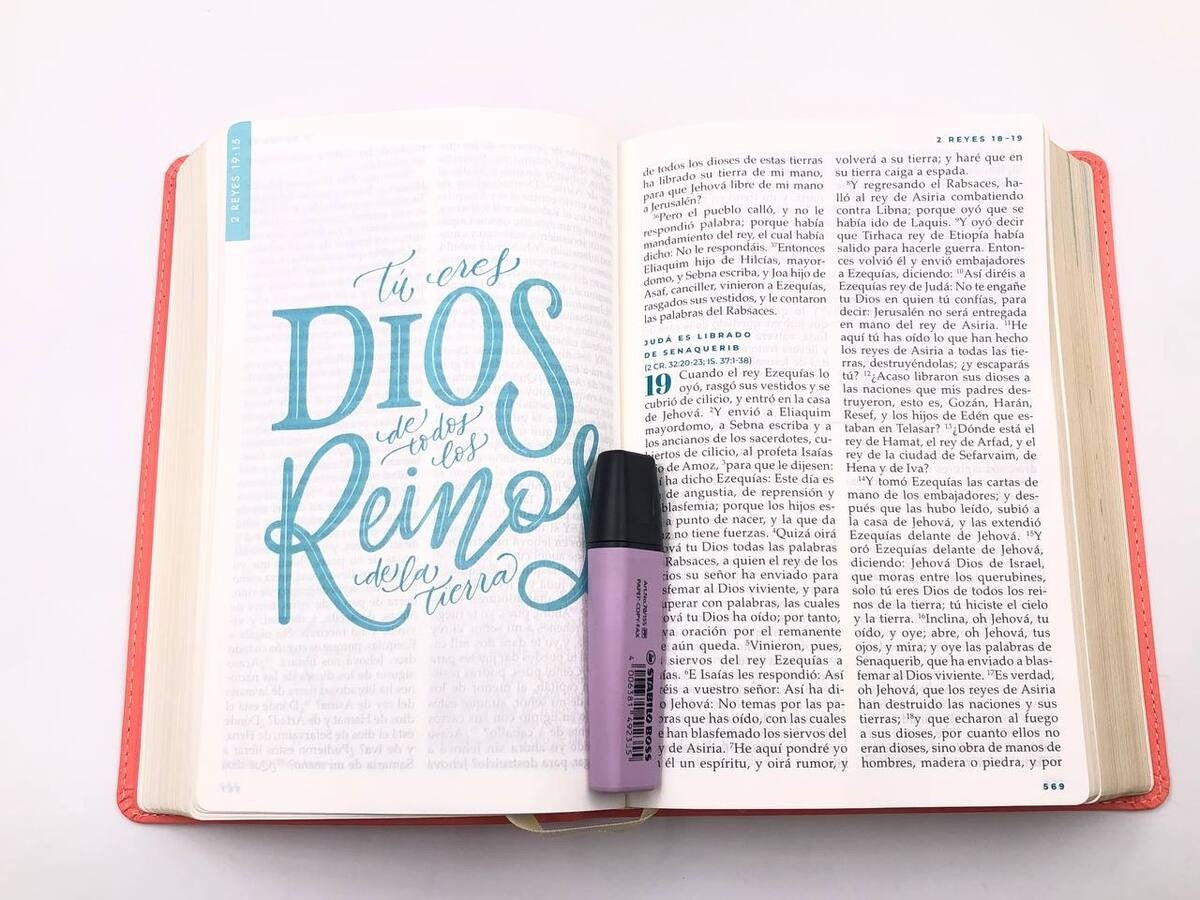 2 REYES 19:15
tú eres
DIOS
de
todos
los
Reinos
de la
tierra
2 REYES 18-19
de todos los dioses de estas tierras
ha librado su tierra de mi mano,
para que Jehová libre de mi mano
a Jerusalén?
36Pero el pueblo calló, y no le
respondió palabra; porque había
mandamiento del rey, el cual había
dicho: No le respondáis. 37Entonces
Eliaquim hijo de Hilcías, mayor-
domo, y Sebna escriba, y Joa hijo de
Asaf, canciller, vinieron a Ezequías,
rasgados sus vestidos, y le contaron
las palabras del Rabsaces.
JUDÁ ES LIBRADO
DE SENAQUERIB
(2 CR. 32:20-23; IS. 37:1-38)
19 Cuando el rey Ezequías lo
oyó, rasgó sus vestidos y se
cubrió de cilicio, y entró en la casa
de Jehová. 2Y envió a Eliaquim
mayordomo, a Sebna escriba y a
los ancianos de los sacerdotes, cu-
biertos de cilicio, al profeta Isaías
de Amoz, 3para que le dijesen:
ha dicho Ezequías: Este día es
de angustia, de reprensión y
blasfemia; porque los hijos es-
a punto de nacer, y la que da
no tiene fuerzas. 4Quizá oirá
tu Dios todas las palabras
Rabsaces, a quien el rey de los
su señor ha enviado para
al Dios viviente, y para
con palabras, las cuales
tu Dios ha oído; por tanto,
oración por el remanente
aún queda. 5Vinieron, pues,
siervos del rey Ezequías a
6E Isaías les respondió: Así
a vuestro señor: Así ha di-
Jehová: No temas por las pa-
que has oído, con las cuales
han blasfemado los siervos del
de Asiria. 7He aquí pondré yo
él un espíritu, y oirá rumor, y
volverá a su tierra; y haré que en
su tierra caiga a espada.
8Y regresando el Rabsaces, ha-
lló al rey de Asiria combatiendo
contra Libna; porque oyó que se
había ido de Laquis. 9Y oyó decir
que Tirhaca rey de Etiopía había
salido para hacerle guerra. Enton-
ces volvió él y envió embajadores
a Ezequías, diciendo: 10Así diréis a
Ezequías rey de Judá: No te engañe
tu Dios en quien tú confías, para
decir: Jerusalén no será entregada
en mano del rey de Asiria. 11He
aquí tú has oído lo que han hecho
los reyes de Asiria a todas las tie-
rras, destruyéndolas; ¿y escaparás
tú? 12¿Acaso libraron sus dioses a
las naciones que mis padres des-
truyeron, esto es, Gozán, Harán,
Resef, y los hijos de Edén que es-
taban en Telasar? 13¿Dónde está el
rey de Hamat, el rey de Arfad, y el
rey de la ciudad de Sefarvaim, de
Hena y de Iva?
14Y tomó Ezequías las cartas de
mano de los embajadores; y des-
pués que las hubo leído, subió a
la casa de Jehová, y las extendió
Ezequías delante de Jehová. 15Y
oró Ezequías delante de Jehová,
diciendo: Jehová Dios de Israel,
que moras entre los querubines,
solo tú eres Dios de todos los rei-
nos de la tierra; tú hiciste el cielo
y la tierra. 16Inclina, oh Jehová, tu
oído, y oye; abre, oh Jehová, tus
ojos, y mira; y oye las palabras de
Senaquerib, que ha enviado a blas-
femar al Dios viviente. 17Es verdad,
oh Jehová, que los reyes de Asiria
han destruido las naciones y sus
tierras; 18y que echaron al fuego
a sus dioses, por cuanto ellos no
eran dioses, sino obra de manos de
hombres, madera o piedra, y por
569
Art.No.70/155
PAPER-COPY-FAX
STABILO BOSS
4 006381 492355